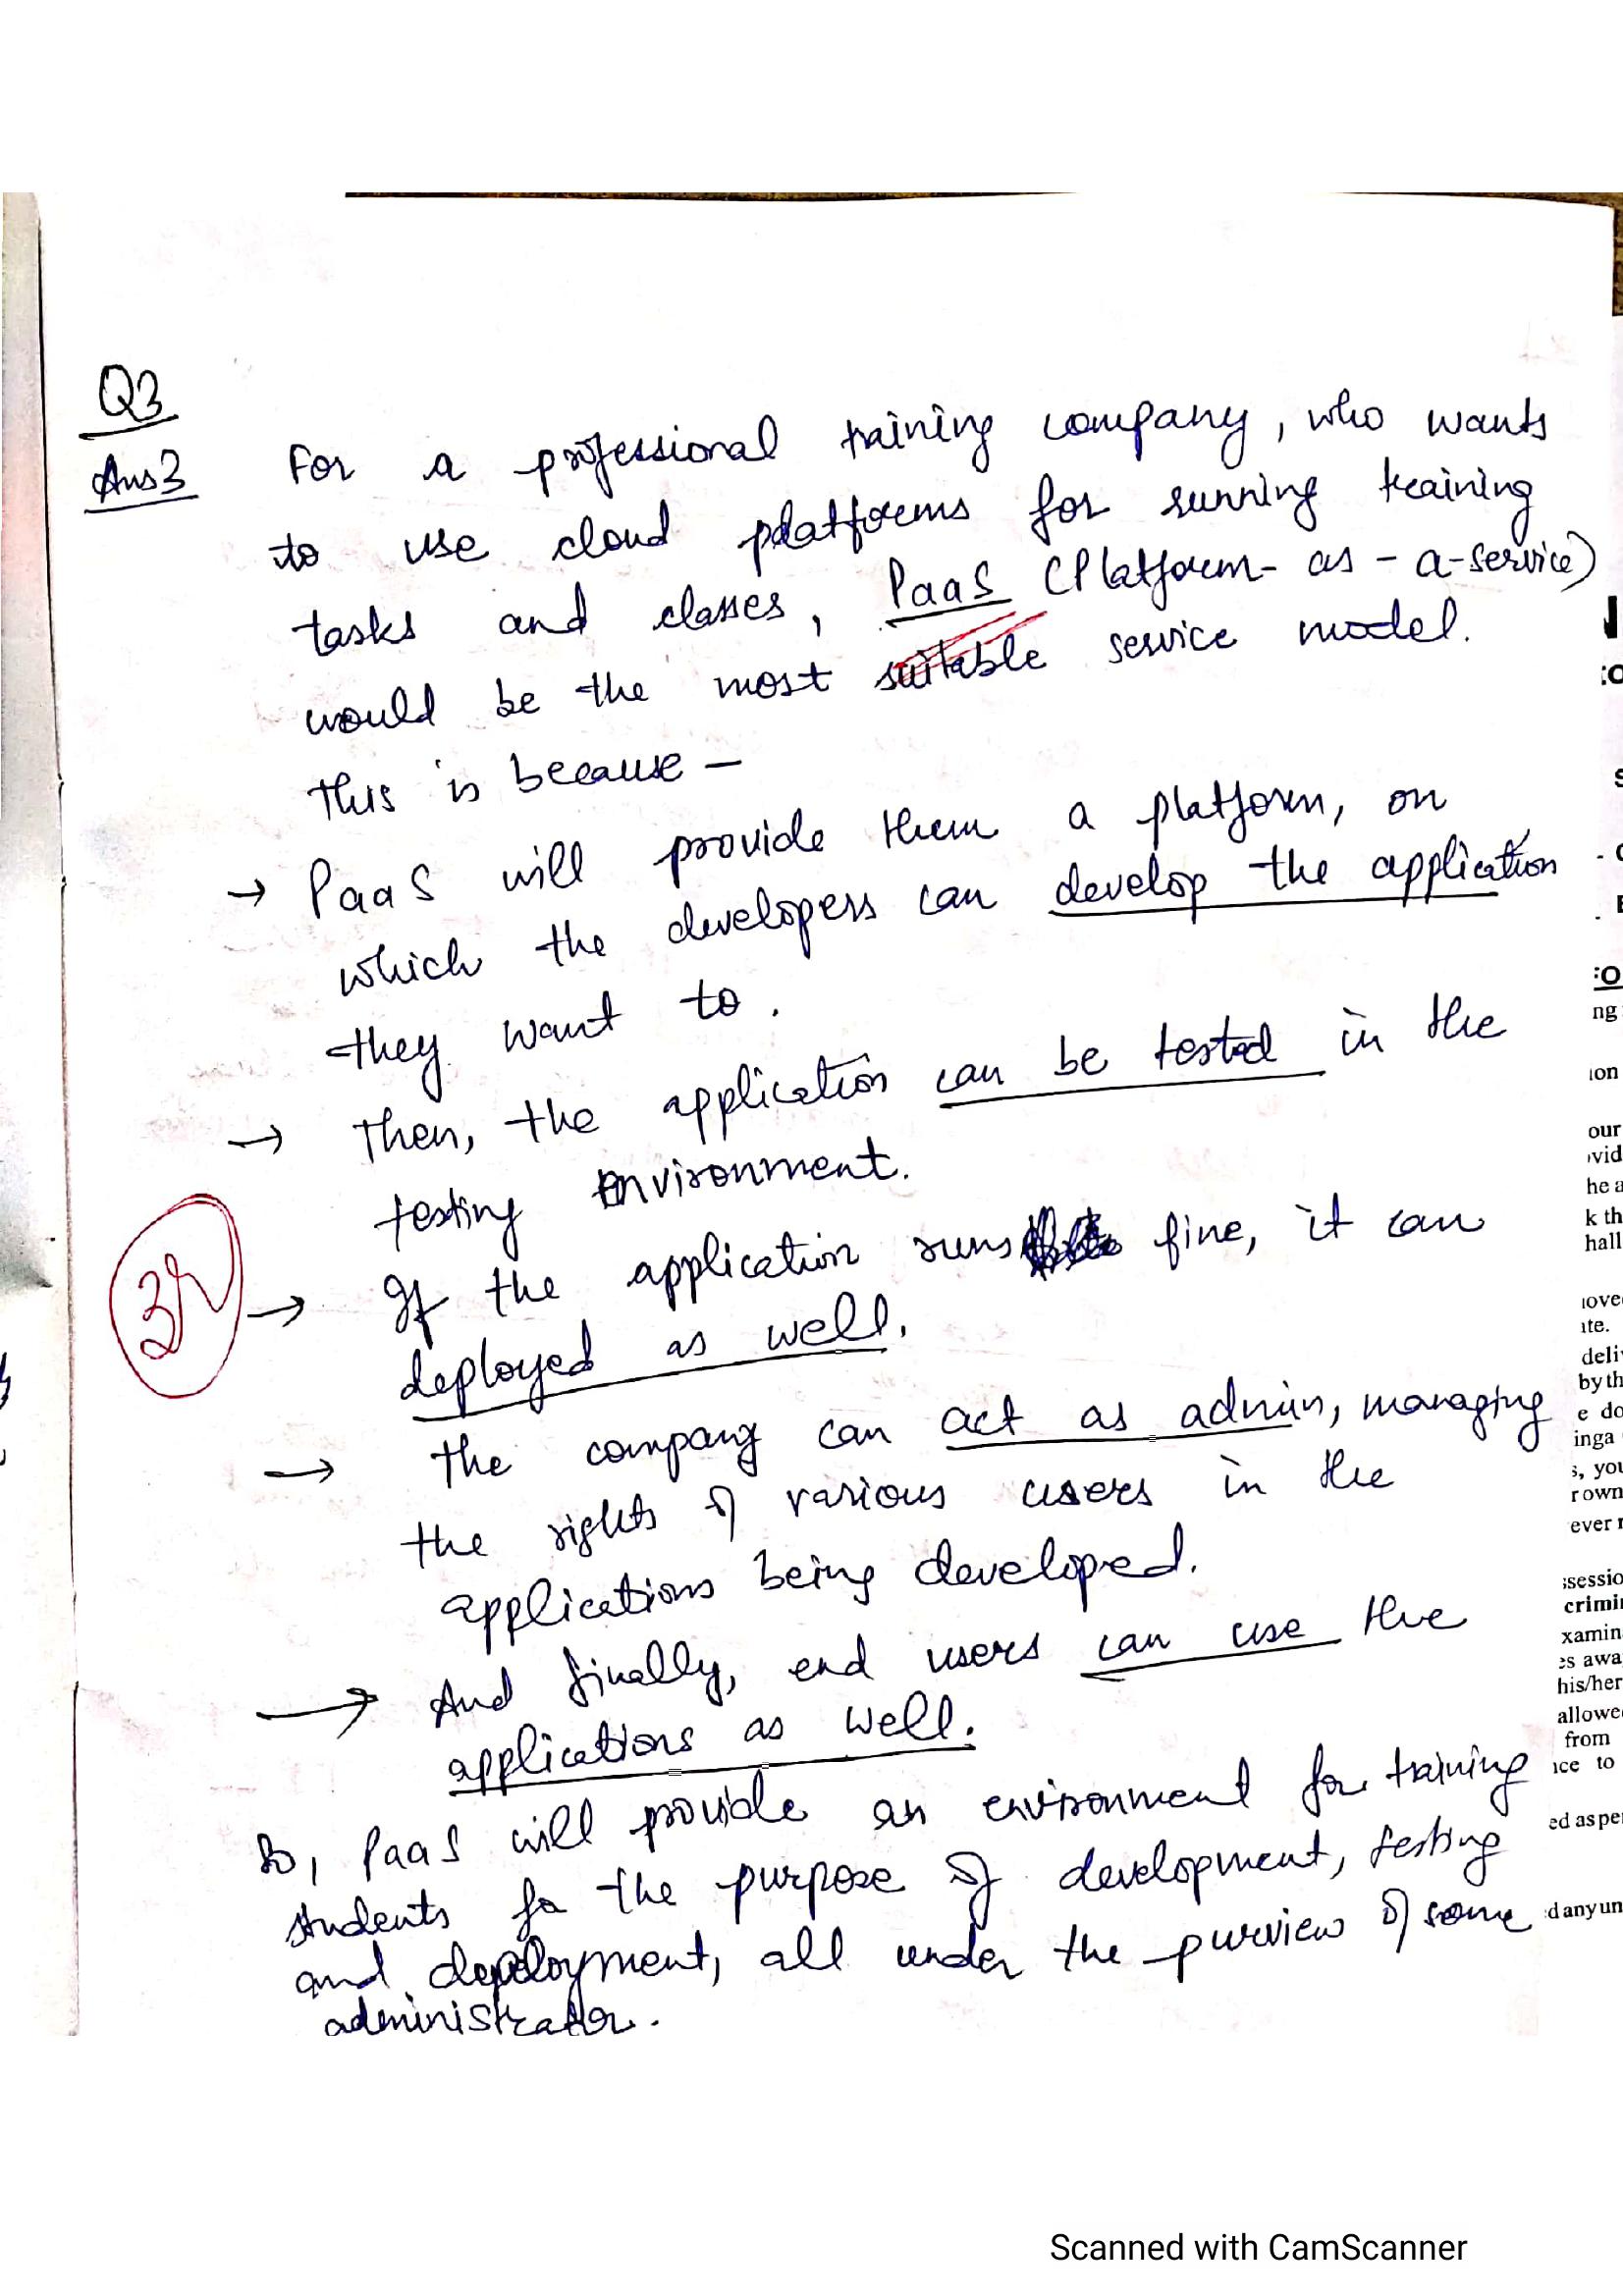 Q3
Ans3 For a professional training company, who wants
to use cloud platforms for running training
tasks and classes, PaaS (Platform-as-a-service)
would be the most suitable service model.
This is because –
→ PaaS will provide them a platform, on
which the developers can develop the application
they want to.
→ Then, the application can be tested in the
testing environment.
→ If the application runs fine, it can
deployed as well.
→ The company can act as admin, managing
the rights of various users in the
applications being developed.
→ And finally, end users can use the
applications as well.
So, PaaS will provide an environment for training
students for the purpose of development, testing
and deployment, all under the purview of some
administrator.
ng
ion
our
vid
he a
k th
hall
ite.
by th
e do
inga
s, you
r own
ever r
crimi
xamin
es awa
his/her
allowe
from
ed as per
d any un
Scanned with CamScanner